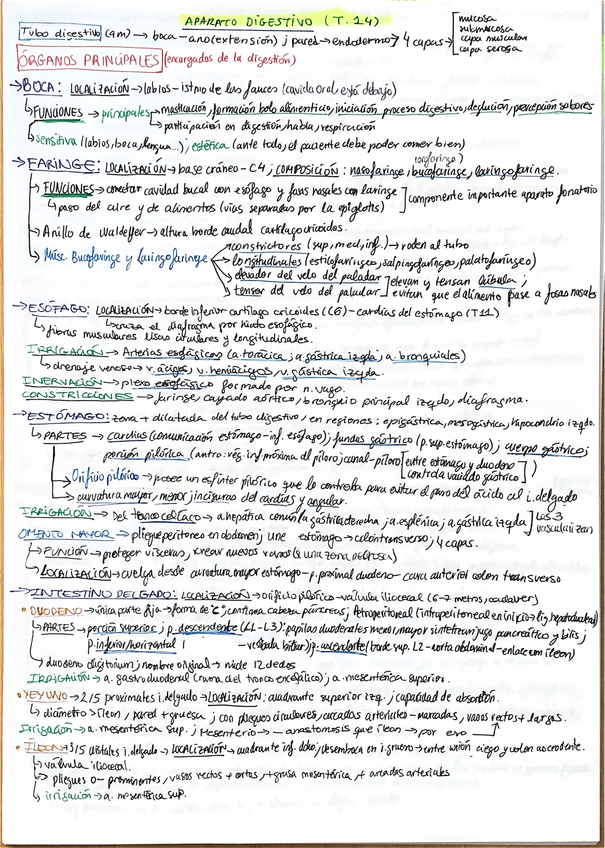 APARATO DIGESTIVO (T.14)
Tubo digestivo (9m) → boca-ano (extensión) ; pared → endodermo → 4 capas → [mucosa
submucosa
capa muscular
capa serosa
ÓRGANOS PRINCIPALES (encargados de la digestión)
→ BOCA: LOCALIZACIÓN → labios - istmo de las fauces (cavidad oral está debajo)
↳ FUNCIONES → principales → masticación, formación bolo alimenticio, iniciación proceso digestivo, deglución, percepción sabores
↳ participación en digestión, habla, respiración
↳ sensitiva (labios, boca, lengua...); estética (ante todo, el paciente debe poder comer bien)
(orofaringe)
→ FARINGE: LOCALIZACIÓN → base cráneo - C4 ; COMPOSICIÓN : nasofaringe, bucofaringe, laringofaringe.
FUNCIONES → conectar cavidad bucal con esófago y fosas nasales con laringe ] componente importante aparato fonatorio
↳ paso del aire y de alimentos (vías separadas por la epiglotis)
→ Anillo de Waldeyer → altura borde caudal cartílago cricoides.
→ Músc. Bucofaringe y laringofaringe → constrictores (sup, med, inf.) → rodean al tubo
→ longitudinales (estilofaríngeo, salpingofaríngeo, palatofaríngeo)
→ elevador del velo del paladar ] elevan y tensan úvula ;
→ tensor del velo del paladar ] evitan que el alimento pase a fosas nasales
→ ESÓFAGO: LOCALIZACIÓN → borde inferior cartílago cricoides (C6) - cardias del estómago (T11)
↳ cruza el diafragma por hiato esofágico.
↳ fibras musculares lisas circulares y longitudinales.
IRRIGACIÓN → Arterias esofágicas (a. torácica ; a. gástrica izqda ; a. bronquiales)
↳ drenaje venoso → v. ácigos ; v. hemiácigos, v. gástrica izqda.
INERVACIÓN → plexo esofágico formado por n. vago.
CONSTRICCIONES → faringe, cayado aórtico, bronquio principal izqdo, diafragma.
→ ESTÓMAGO: zona + dilatada del tubo digestivo, en regiones : epigástrica, mesogástrica, hipocondrio izqdo.
↳ PARTES → cardias (comunicación estómago - inf. esófago) ; fundus gástrico (p. sup. estómago) ; cuerpo gástrico ;
porción pilórica (antro : reg. inf próxima al píloro ; canal - píloro [entre estómago y duodeno
controla vaciado gástrico])
→ Orificio pilórico → posee un esfínter pilórico que lo controla para evitar el paso del ácido al i. delgado
→ curvatura mayor, menor, incisuras del cardias y angular.
IRRIGACIÓN → Del tronco celíaco → a. hepática común (a gástrica derecha ; a. esplénica ; a. gástrica izqda ] las 3 vascularizan
OMENTO MAYOR → pliegue peritoneo en abdomen ; une estómago → colon transverso ; 4 capas.
↳ FUNCIÓN → proteger vísceras, crear nuevos vasos
↳ LOCALIZACIÓN → cuelga desde curvatura mayor estómago - p. proximal duodeno - cara anterior colon transverso
→ INTESTINO DELGADO: LOCALIZACIÓN → orificio pilórico - válvula iliocecal (6-7 metros, cadáver)
• DUODENO → única parte fija → forma de "C", contiene cabeza páncreas ; retroperitoneal (intraperitoneal en inicio
↳ PARTES → porción superior ; p. descendente (L1-L3) : papilas duodenales menor/mayor jugo pancreático y bilis ;
p. inferior/horizontal p. ascendente (borde sup. L2 - aorta abdominal - enlace con íleon)
↳ duodeno digitorium ; nombre original → mide 12 dedos
IRRIGACIÓN → a. gastroduodenal (rama del tronco ; a. mesentérica superior.
• YEYUNO → 2/5 proximales i. delgado → LOCALIZACIÓN : cuadrante superior izq. ; capacidad de absorción.
↳ diámetro > íleon, pared + gruesa ; con pliegues circulares, arcadas arteriales - marcadas, vasos rectos + largas.
Irrigación → a. mesentérica sup. ; Mesenterio → - anastomosis que íleon → por eso
• ÍLEON → 3/5 distales i. delgado → LOCALIZACIÓN → cuadrante inf. dcho ; desemboca en i. grueso → entre unión ciego y colon ascendente.
↳ válvula iliocecal.
↳ pliegues 0 - prominentes, vasos rectos + cortos, + grasa mesentérica, + arcadas arteriales
↳ irrigación → a. mesentérica sup.